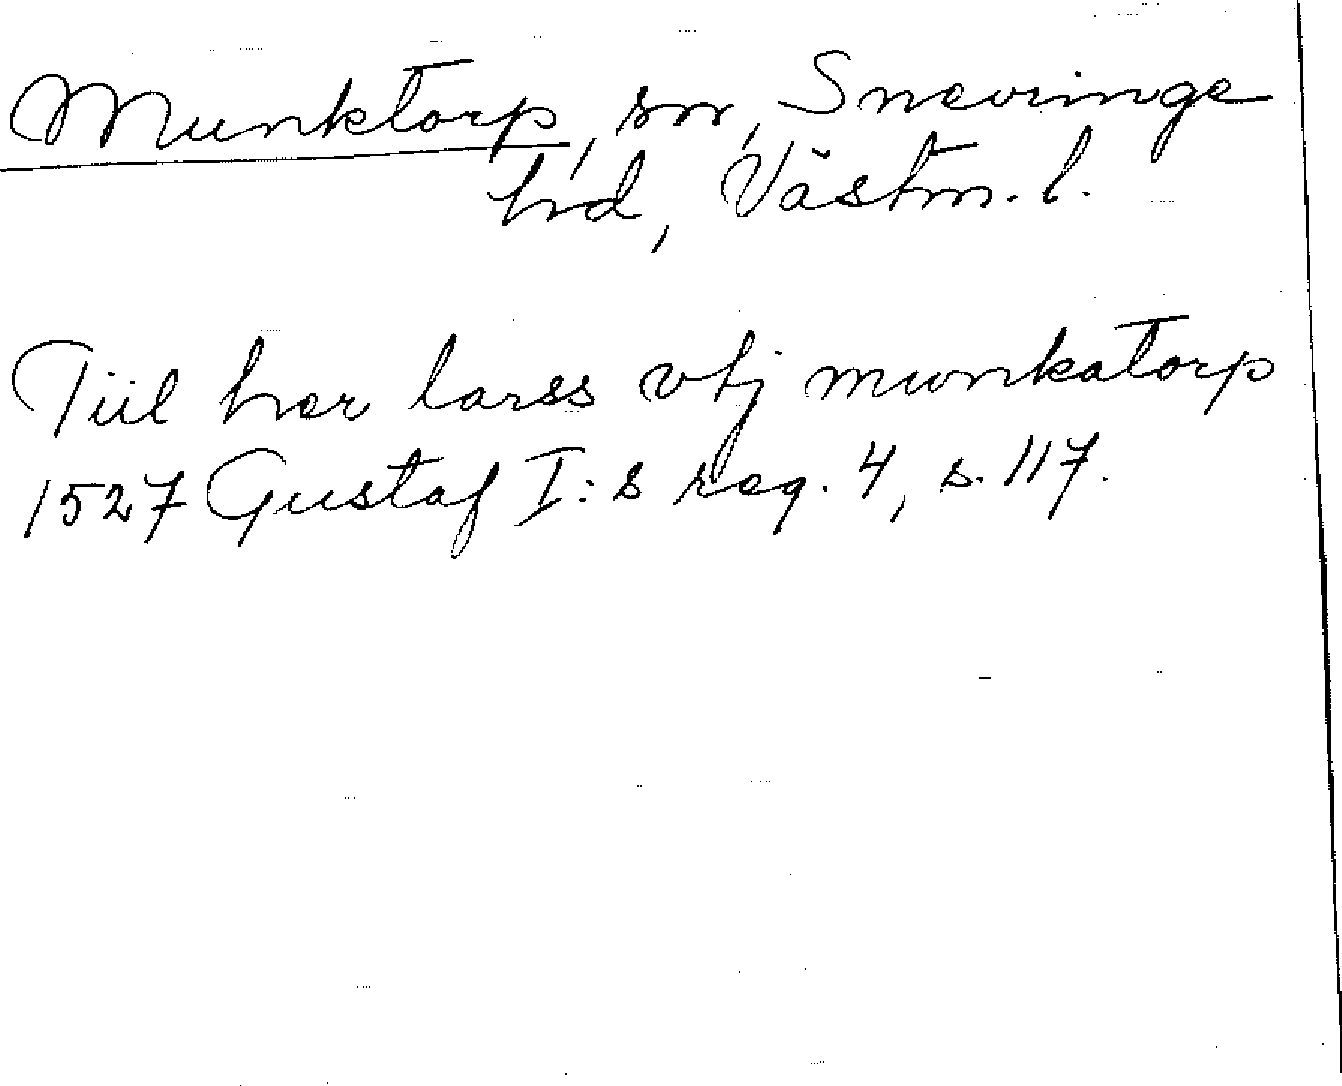 Munktorp, sn, Snevringe
hd, Västm. l.
Tiil her larss vtj mwnkatorp
1527 Gustaf I:s reg. 4, s. 117.